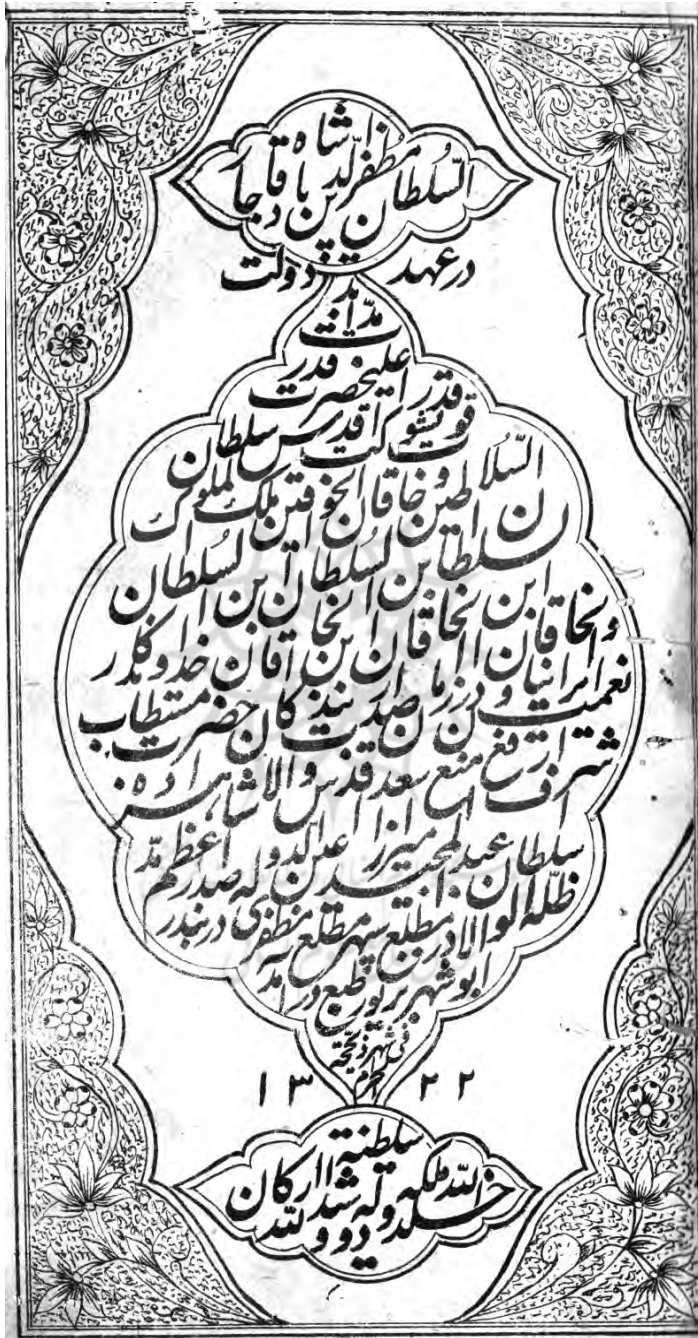 السّلطان مظفرالدّین شاه
پادقاجار
در عهد دولت
مدّت
اعلیحضرت قدر
قدر قوت
شوکت اقدس سلطان
السّلاطین و خاقان الخواقین ملک الملوک
السلطان ابن السلطان ابن السلطان
والخاقان ابن الخاقان ابن الخاقان خداوندگار
نعمت ایرانیان و در زمان صدارت بندگان حضرت مستطاب
اشرف ارفع امنع اسعد اقدس والا شاهزاده
سلطان عبدالمجید میرزا عین الدوله صدر اعظم مدّ
ظلّه الوالا در مطبع سپهر مطلع مظفری در بندر
ابوشهر بزیور طبع در آمد
فی شهر ذیحجّة
الحرام
۱۳۲۲
خلدالله ملکه و سلطنته
دولته و شیّد ارکان